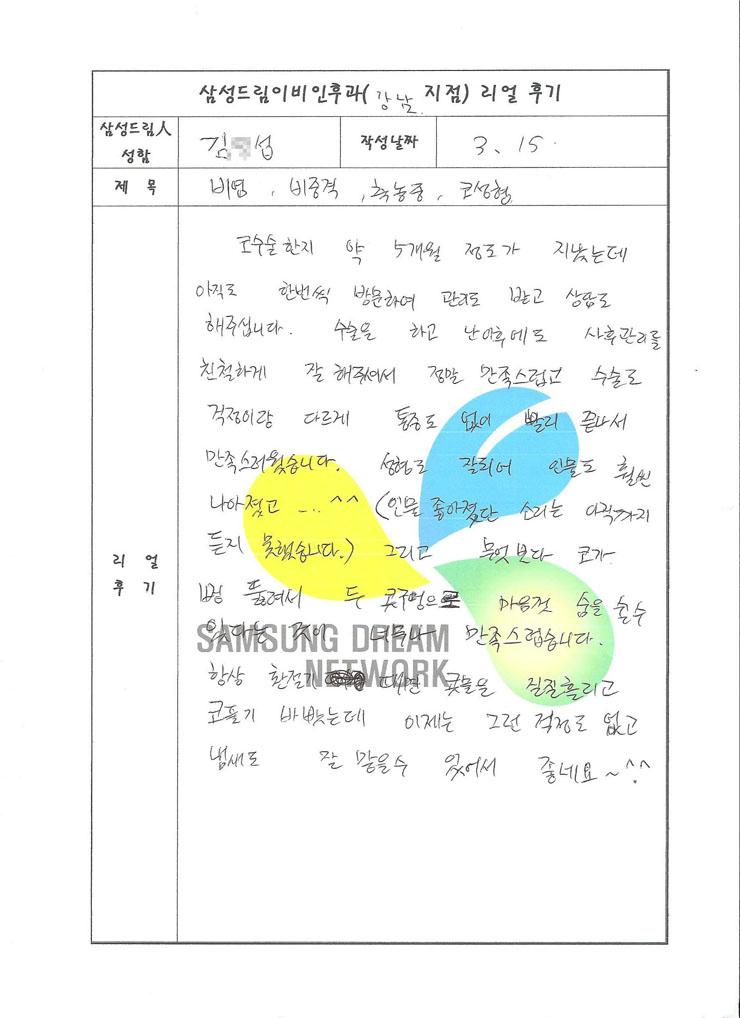 삼성드림이비인후과(강남 지점) 리얼 후기
삼성드림人 성함
김 섭
작성날짜
3. 15.
제 목
비염, 비중격, 축농증, 코성형
리 얼 후 기
코수술한지 약 5개월 정도가 지났는데
아직도 한번씩 방문하여 관리도 받고 상담도
해주십니다. 수술을 하고 난 이후에도 사후관리를
친철하게 잘 해주셔서 정말 만족스럽고 수술도
걱정이랑 다르게 통증도 없이 빨리 끝나서
만족스러웠습니다. 성형도 잘되어 인물도 훨씬
나아졌고 ... ^^ (인물 좋아졌단 소리는 아직까지
듣지 못했습니다.) 그리고 무엇 보다 코가
뻥 뚫려서 두 콧구멍으로 마음껏 숨을 쉴수
있다는 것이 너무나 만족스럽습니다.
항상 환절기 때면 콧물을 질질흘리고
코풀기 바빴는데 이제는 그런 걱정도 없고
냄새도 잘 맡을수 있어서 좋네요~^^
SAMSUNG DREAM
NETWORK